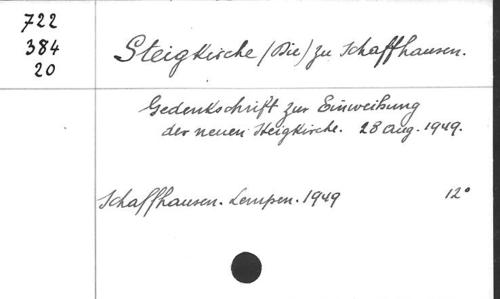 722
384
20
Steigkirche (Die) zu Schaffhausen.
Gedenkschrift zur Einweihung
der neuen Steigkirche. 28 Aug. 1949.
Schaffhausen. Lempen. 1949 12°